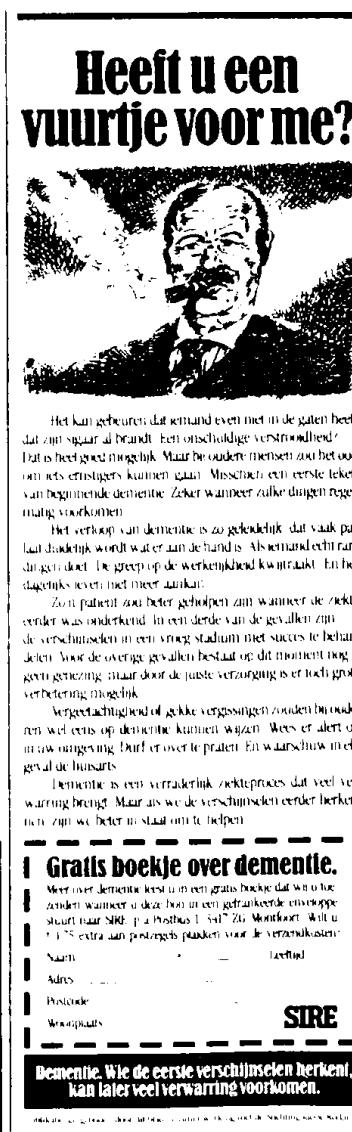 Heeft u een
vuurtje voor me?
Het kan gebeuren dat iemand even niet in de gaten heeft
dat zijn sigaar al brandt. Een onschuldige verstrooidheid?
Dat is heel goed mogelijk. Maar bij oudere mensen zou het oo
om iets ernstigers kunnen gaan. Misschien een eerste teke
van beginnende dementie. Zeker wanneer zulke dingen rege
matig voorkomen.
Het verloop van dementie is zo geleidelijk, dat vaak pa
laat duidelijk wordt wat er aan de hand is. Als iemand echt rar
dingen doet. De greep op de werkelijkheid kwijtraakt. En he
dagelijks leven niet meer aankan.
Zo'n patiënt zou beter geholpen zijn wanneer de ziekt
eerder was onderkend. In een derde van de gevallen zijn
de verschijnselen in een vroeg stadium met succes te behan
delen. Voor de overige gevallen bestaat op dit moment nog
geen genezing, maar door de juiste verzorging is er toch grot
verbetering mogelijk.
Vergeetachtigheid of gekke vergissingen zouden bij oude
ren wel eens op dementie kunnen wijzen. Wees er alert o
in uw omgeving. Durf er over te praten. En waarschuw in el
geval de huisarts.
Dementie is een verraderlijk ziekteproces dat veel ve
warring brengt. Maar als we de verschijnselen eerder herke
nen, zijn we beter in staat om te helpen.
Gratis boekje over dementie.
Meer over dementie leest u in een gratis boekje dat wij u toe
zenden wanneer u deze bon in een gefrankeerde enveloppe
stuurt naar SIRE, p/a Postbus 1, 3417 ZG Montfoort. Wilt u
f 1,75 extra aan postzegels plakken voor de verzendkosten?
Naam Leeftijd
Adres
Postcode
Woonplaats
SIRE
Dementie. Wie de eerste verschijnselen herkent,
kan later veel verwarring voorkomen.